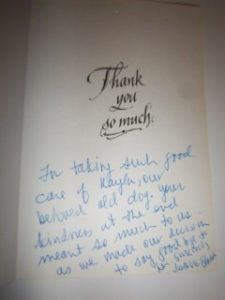 Thank
you
so much.
For taking such good
care of Kayla, our
beloved old dog. your
kindness at the end
meant so much to us
as we made our decision
to say good bye to
her. Sincerely,